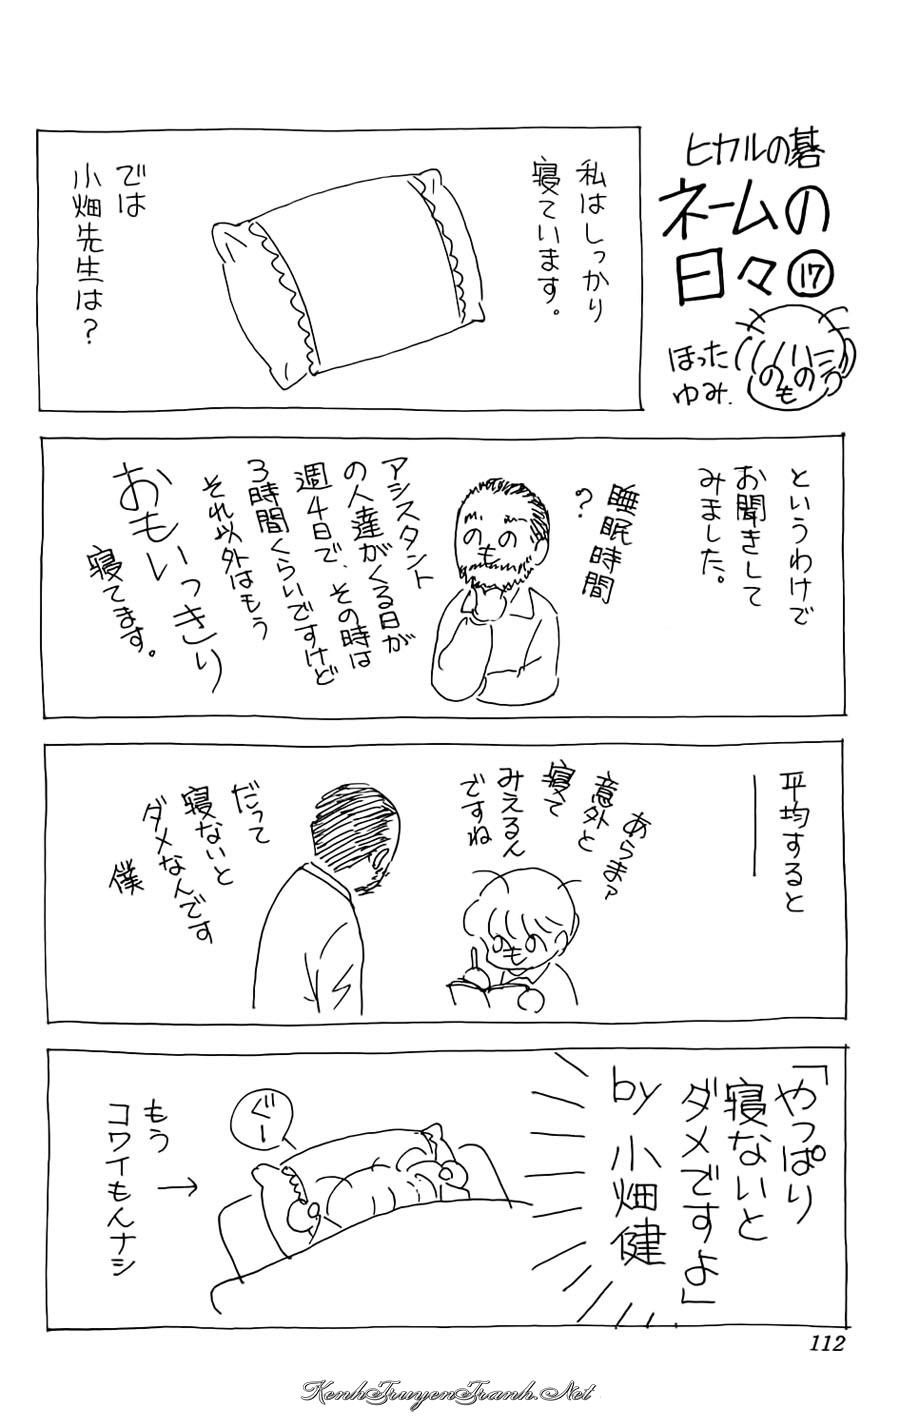 ヒカルの碁
ネームの
日々⑰
ほった
ゆみ.
私はしっかり
寝ています。
では
小畑先生は?
というわけで
お聞きして
みました。
睡眠時間
?
アシスタント
の人達がくる日が
週4日で、その時は
3時間くらいですけど
それ以外はもう
おもいっきり
寝てます。
平均すると
あらまァ
意外と
寝て
みえるん
ですね
だって
寝ないと
ダメなんです
僕
「やっぱり
寝ないと
ダメですよ」
by 小畑健
ぐー
もう→
コワイもんナシ
112
KenhTruyenTranh.Net